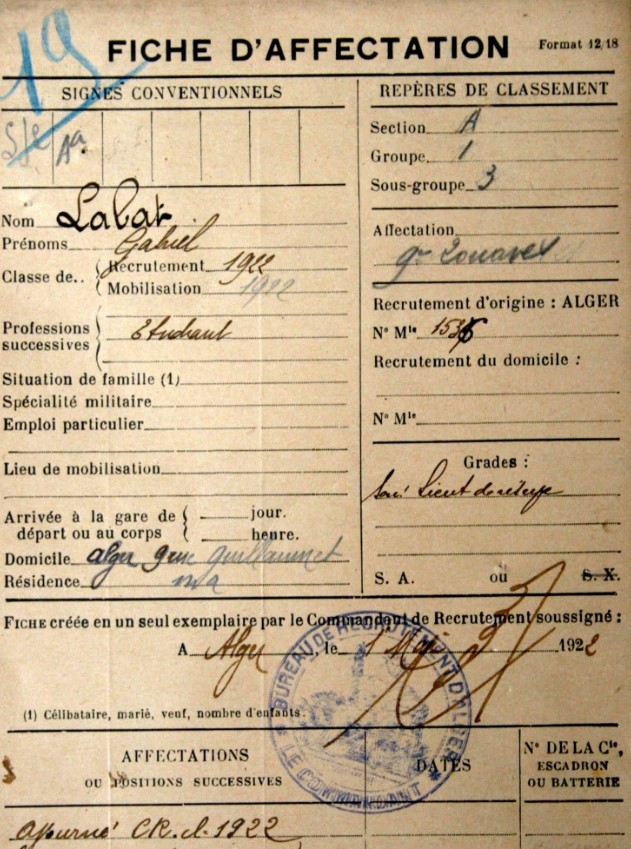 19
FICHE D'AFFECTATION
Format 12/18
SIGNES CONVENTIONNELS
Aa
REPÈRES DE CLASSEMENT
Section A
Groupe 1
Sous-groupe 3
Nom Labat
Prénoms Gabriel
Classe de.. { Recrutement 1922
Mobilisation 1922
Affectation
9e Zouaves
Recrutement d'origine : ALGER
N° Mle 1536
Professions successives { Etudiant
Recrutement du domicile :
N° Mle
Situation de famille (1)
Spécialité militaire
Emploi particulier
Lieu de mobilisation
Grades :
Sous Lieut de réserve
Arrivée à la gare de départ ou au corps { jour.
heure.
Domicile Alger 9 rue Guillaumet
Résidence
S. A. ou S. X.
FICHE créée en un seul exemplaire par le Commandant de Recrutement soussigné :
A Alger, le 1 Mai 1922
BUREAU DE RECRUTEMENT D'ALGER
LE COMMANDANT
(1) Célibataire, marié, veuf, nombre d'enfants.
AFFECTATIONS
OU POSITIONS SUCCESSIVES
DATES
N° DE LA Cie,
ESCADRON
OU BATTERIE
Ajourné C.R. 1922